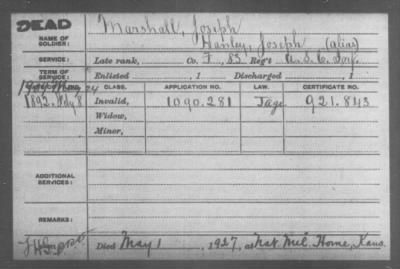 DEAD
NAME OF SOLDIER: Marshall, Joseph
Hanley, Joseph (alias)
SERVICE: Late rank, Co. F, 83 Reg't U.S.C. Inf.
TERM OF SERVICE: Enlisted , 1 Discharged , 1
CLASS. APPLICATION NO. LAW. CERTIFICATE NO.
1892. July 8 Invalid, 1090.281 921.843
Widow,
Minor,
ADDITIONAL SERVICES:
REMARKS:
Died May 1, 1927, at Nat. Mil. Home, Kans.